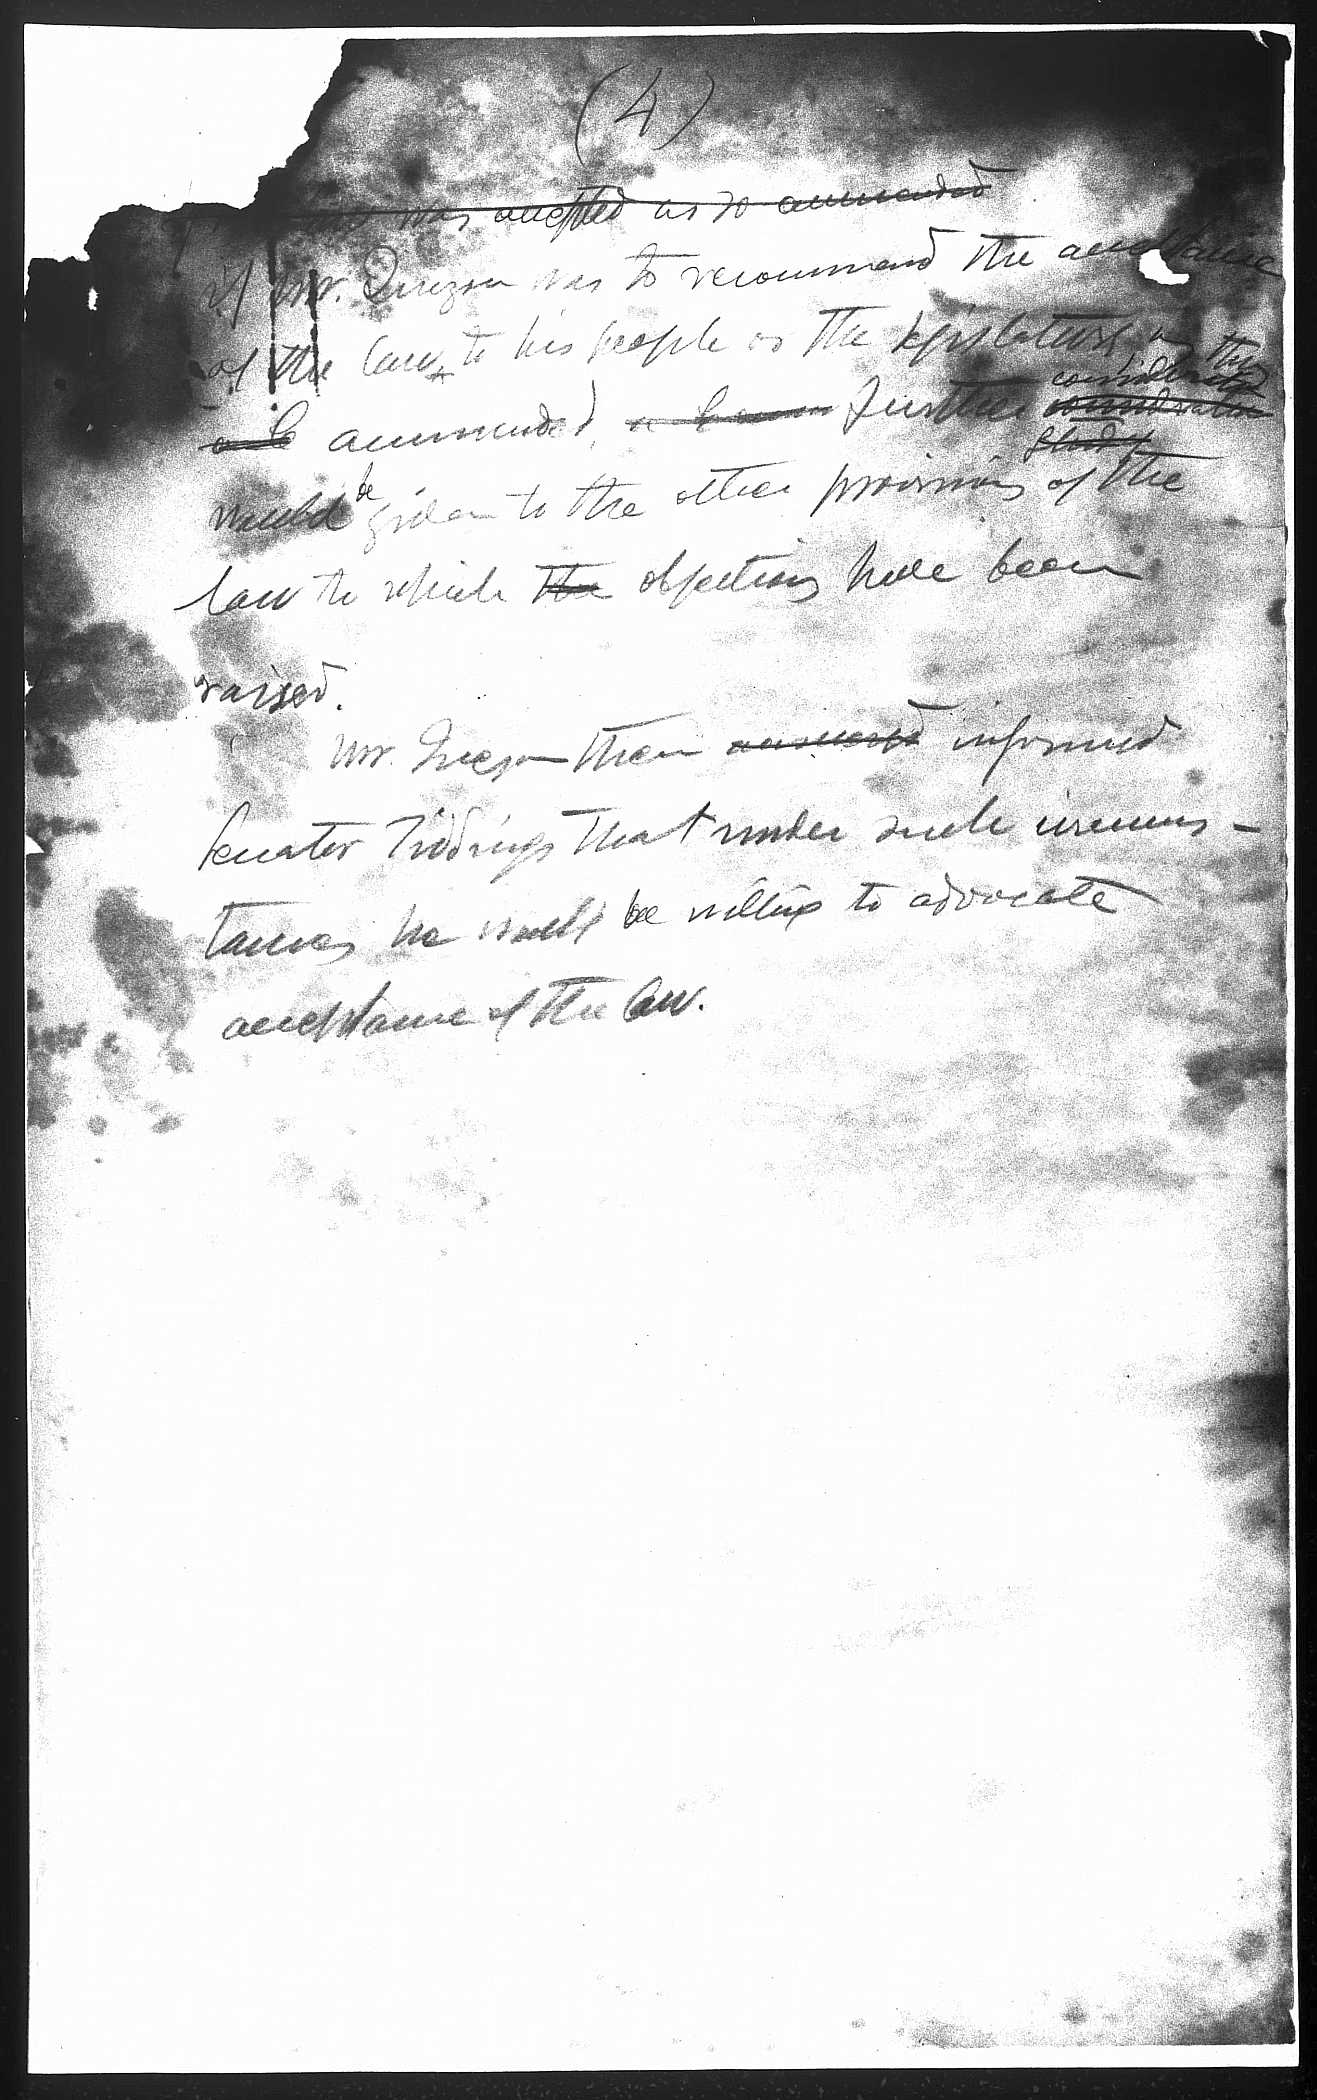 (4)
was accepted as so ammended
if Mr. Quezon was to recommend the acceptance
of the law to his people or the legislature, as thus
consideration
ammended, further consideration
study
be
would given to the other provisions of the
law to which the objections have been
raised.
Mr. Quezon then answered informed
Senator Tidings that under such circums-
tances he would be willing to advocate
acceptance of the law.